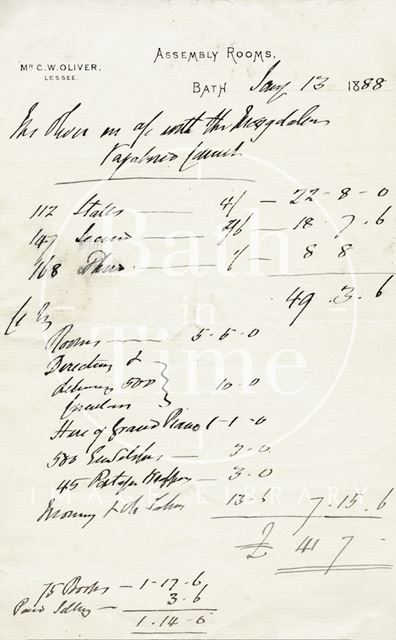 ASSEMBLY ROOMS,
MR C. W. OLIVER,
LESSEE.
BATH Jany 13 1888
Mr Oliver in a/c with the Magdalen
112 Stalls 4/ — 22 - 8 - 0
147 Second 2/6 — 18 7 . 6
168 1/ — 8 8
49 . 3 . 6
Cr By
Rooms — 5 - 5 - 0
Directing &
delivering 500
Circulars 10 - 0
Hire of Grand Piano 1 - 1 - 0
500 Envelopes — 3 - 0
45 Postage Wrappers — 3 - 0
13 - 6 7 . 15 . 6
£ 41 7 -
75 Books — 1 - 17 - 6
Paid Selling — 3 . 6
1 . 14 - 6
Bath
in
Time
IMAGE LIBRARY